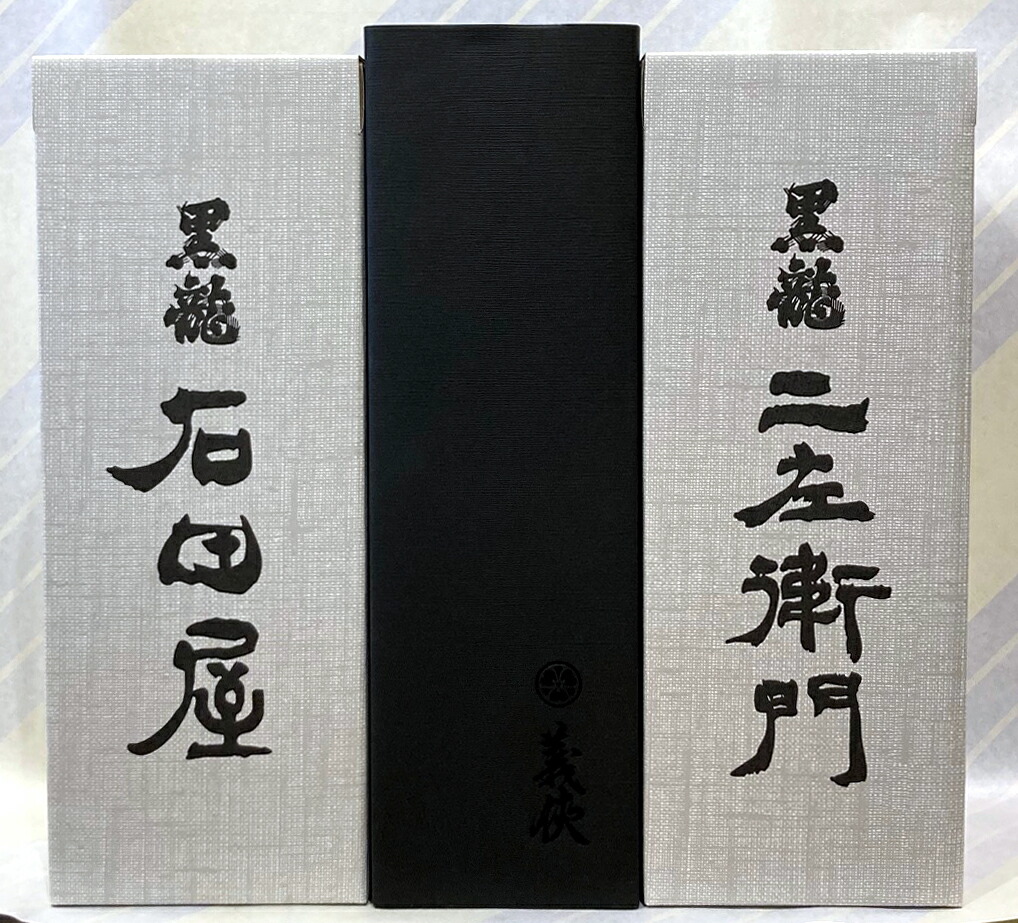 黒龍 石田屋
義侠
黒龍 二左衛門